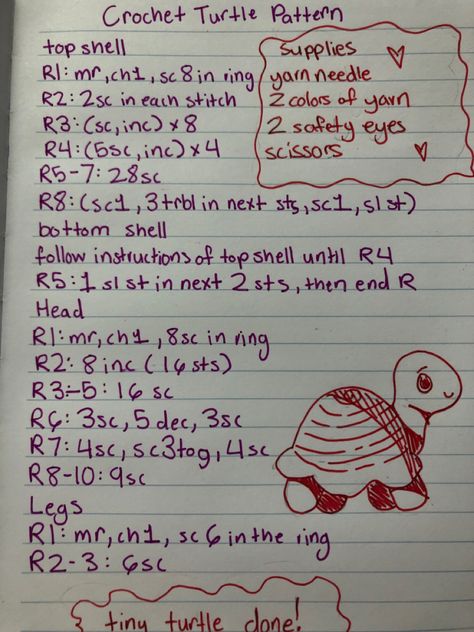 Crochet Turtle Pattern
top shell
R1: mr, ch1, sc 8 in ring
R2: 2sc in each stitch
R3: (sc, inc) x 8
R4: (5sc, inc) x 4
R5-7: 28sc
R8: (sc1, 3trbl in next sts, sc1, sl st)
bottom shell
follow instructions of top shell until R4
R5: 1 sl st in next 2 sts, then end R
Head
R1: mr, ch1, 8sc in ring
R2: 8 inc (16 sts)
R3-5: 16 sc
R6: 3sc, 5 dec, 3sc
R7: 4sc, sc3tog, 4sc
R8-10: 9sc
Legs
R1: mr, ch1, sc 6 in the ring
R2-3: 6sc
supplies
yarn needle
2 colors of yarn
2 safety eyes
scissors
tiny turtle done!